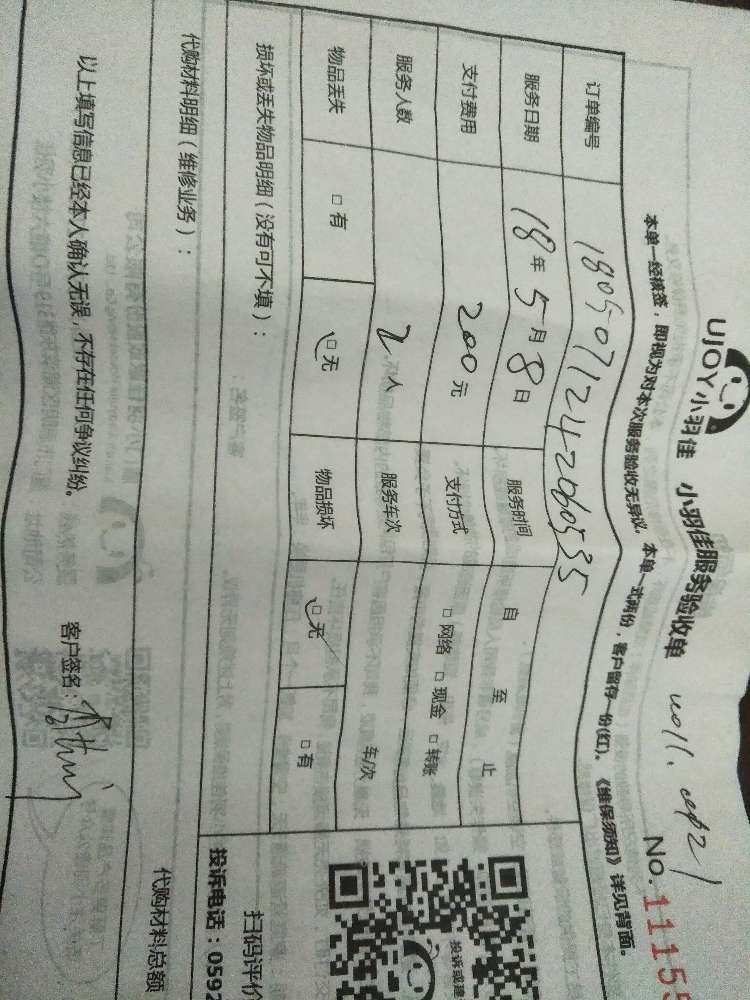 UJOY小羽佳 小羽佳服务验收单
No.11155
本单一经核签，即视为对本次服务验收无异议。本单一式两份，客户留存一份(红)。《维保须知》详见背面。
订单编号 1805071242060535
服务日期 18年5月8日 服务时间 自 至 止
支付费用 200元 支付方式 □网络 □现金 □转账
服务人数 2人 服务车次 车/次
物品丢失 □有 □无 物品损坏 □无 □有
损坏或丢失物品明细（没有可不填）：
代购材料明细（维修业务）： 代购材料总额
以上填写信息已经本人确认无误，不存在任何争议纠纷。 客户签名：
投诉或建
扫码评价
投诉电话：0592